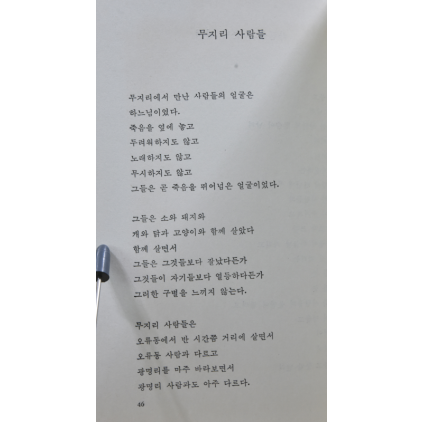 무지리 사람들
무지리에서 만난 사람들의 얼굴은
하느님이었다.
죽음을 옆에 놓고
두려워하지도 않고
노래하지도 않고
무시하지도 않고
그들은 곧 죽음을 뛰어넘은 얼굴이었다.
그들은 소와 돼지와
개와 닭과 고양이와 함께 살았다
함께 살면서
그들은 그것들보다 잘났다든가
그것들이 자기들보다 열등하다든가
그러한 구별을 느끼지 않는다.
무지리 사람들은
오류동에서 반 시간쯤 거리에 살면서
오류동 사람과 다르고
광명리를 마주 바라보면서
광명리 사람과도 아주 다르다.
46